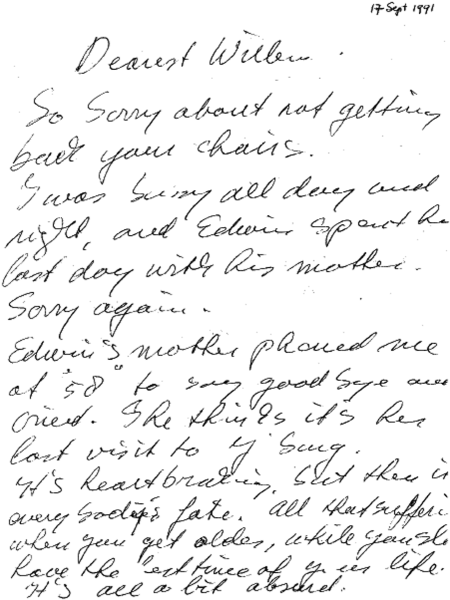 17 Sept 1991
Dearest Willem.
So Sorry about not getting
back your chairs.
I was busy all day and
night, and Edwin spent
last day with his mother.
Sorry again.
Edwin's mother phoned me
at "58" to say good bye and
cried. She thinks it's her
last visit to
It's heartbreaking, but then
every body's fate. All that
when you get older, while you
have the time of life.
It's all a bit absurd.